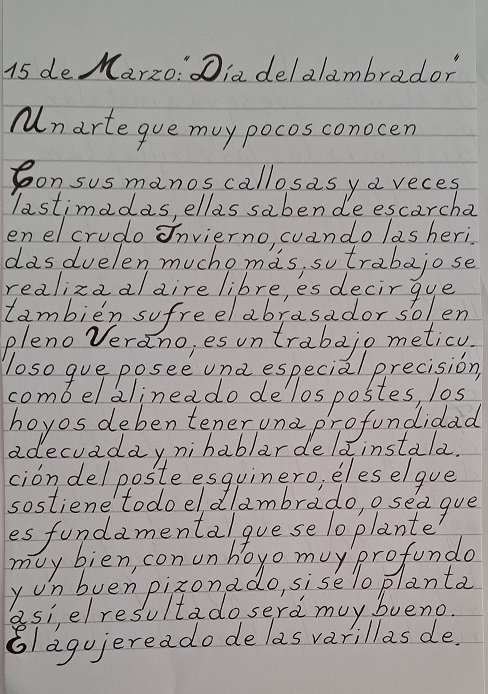 15 de Marzo: "Día del alambrador"
Un arte que muy pocos conocen
Con sus manos callosas y a veces
lastimadas, ellas saben de escarcha
en el crudo Invierno, cuando las heri.
das duelen mucho más, su trabajo se
realiza al aire libre, es decir que
también sufre el abrasador sol en
pleno Verano; es un trabajo meticu.
loso que posee una especial precisión,
como el alineado de los postes, los
hoyos deben tener una profundidad
adecuada y ni hablar de la instala.
ción del poste esquinero, él es el que
sostiene todo el alambrado, o sea que
es fundamental que se lo plante
muy bien, con un hoyo muy profundo
y un buen pizonado, si se lo planta
así, el resultado será muy bueno.
El agujereado de las varillas de.